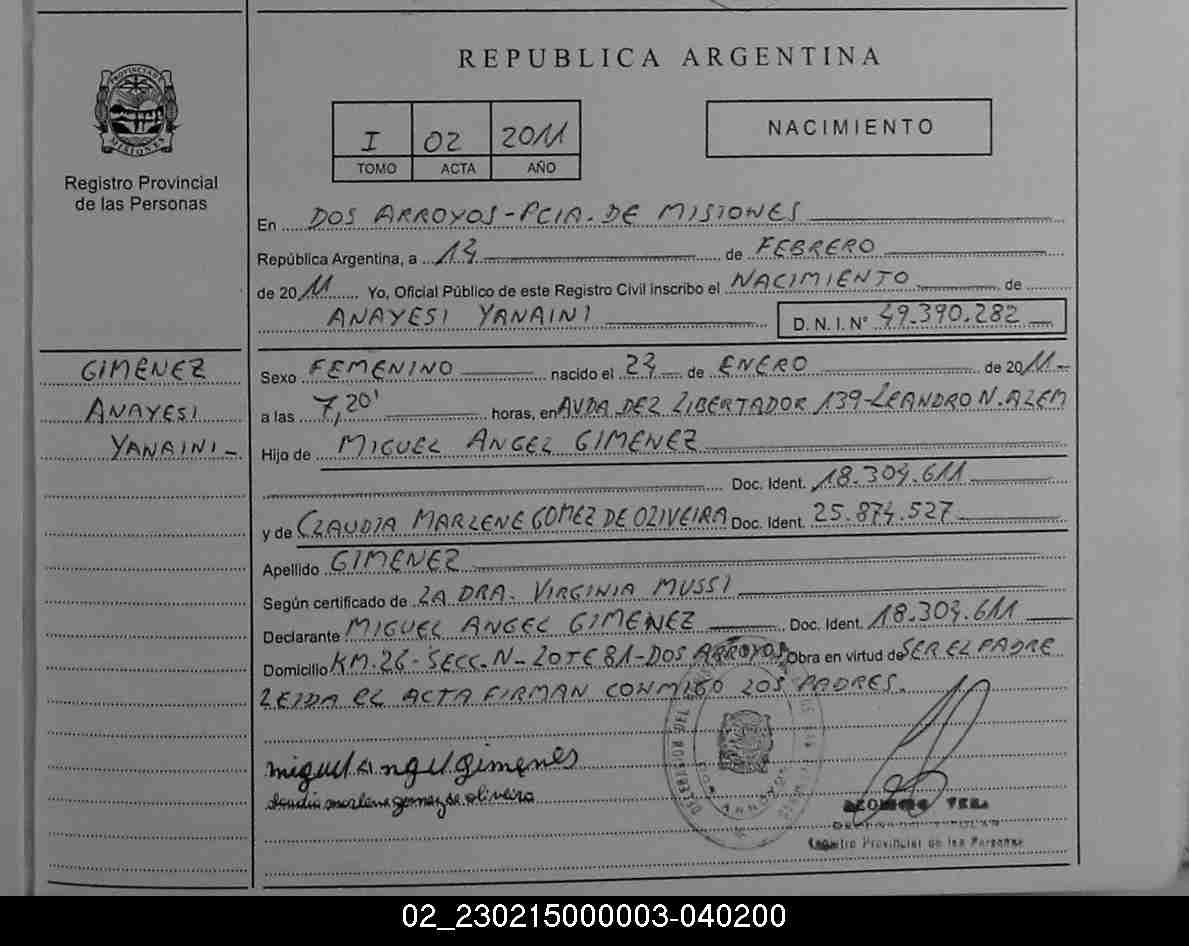 REPUBLICA ARGENTINA
PROVINCIA DE
MISIONES
Registro Provincial
de las Personas
I 02 2011
TOMO ACTA AÑO
NACIMIENTO
En DOS ARROYOS-PCIA. DE MISIONES
República Argentina, a de FEBRERO
de 2011 Yo, Oficial Público de este Registro Civil inscribo el NACIMIENTO de
ANAYESI YANAINI D. N. I. N° 49.390.282
GIMENEZ
ANAYESI
YANAINI-
Sexo FEMENINO nacido el de ENERO de 2011-
a las 7,20' horas, en AVDA DEL LIBERTADOR 139-LEANDRO N. ALEM
Hijo de MIGUEL ANGEL GIMENEZ
Doc. Ident. 18.304.611
y de CLAUDIA MARLENE GOMEZ DE OLIVEIRA Doc. Ident. 25.874.527
Apellido GIMENEZ
Según certificado de LA DRA. VIRGINIA MUSSI
Declarante MIGUEL ANGEL GIMENEZ Doc. Ident. 18.304.611
Domicilio KM.26-SECC.N-LOTE 81-DOS ARROYOS Obra en virtud de SER EL PADRE
LEIDA EL ACTA FIRMAN CONMIGO LOS PADRES.
miguel angel gimenes
claudia marlene gomez de oliveira
DOS ARROYOS
Registro Provincial de las Personas
02_230215000003-040200